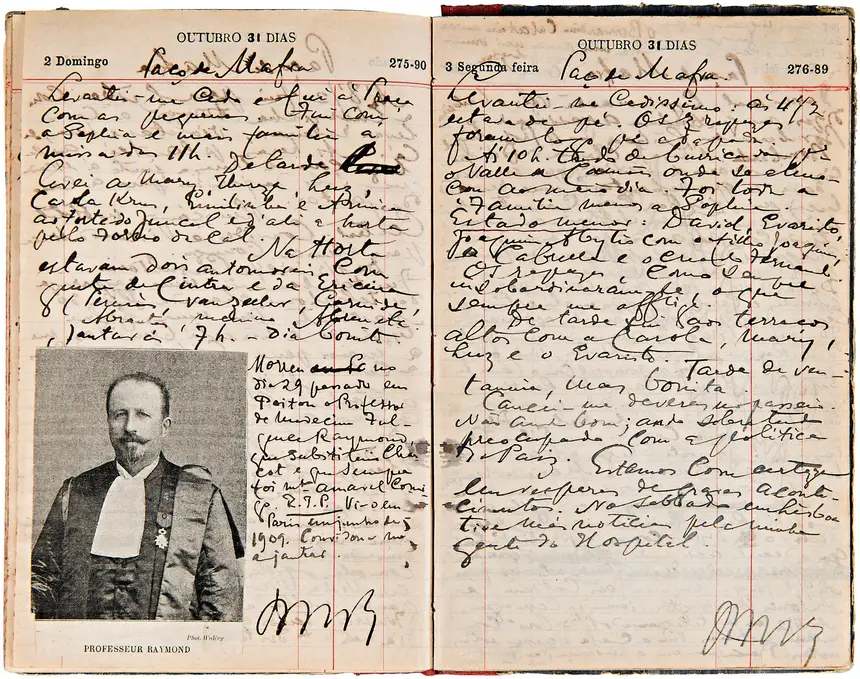 OUTUBRO 31 DIAS
2 Domingo
275-90
Paço de Mafra
Levantei-me cedo e fui à Praça
com as pequenas. Fui com
a Sophia e mais familia a
missa das 11h. De tarde
a Mary, Thereza, Luz,
Carola
ao Forte do Juncal e d'ali a horta
pelo Forno da Cal. Na Horta
estavam dois automoveis com
gente de Cintra e da Ericeira
Vanzeller,
jantará 7h. - Dia bonito.
Morreu no
dia 29 passado em
o Professor
de Medecina Ful-
gence Raymond
que substituiu Char-
cot e que sempre
foi mto amavel comi-
go. R.I.P. Vi-o em
Paris em junho de
1909. Convidou-me
a jantar.
Phot. Walery
PROFESSEUR RAYMOND
OUTUBRO 31 DIAS
3 Segunda feira
276-89
Paço de Mafra
Levantei-me cedissimo. Ás 4 1/2
estava de pé. Os rapazes
foram logo
Ás 10h.
o Valle da onde se
ao meio dia. Foi toda a
familia menos a Sophia.
Estado menor: David, Evaristo,
Joaquim com o filho Joaquim,
o Cabrella e o creado
Os rapazes como sempre
insobordinaram-se, o que
sempre me afflige.
De tarde fui aos terraços
altos com a Carola, Mary,
Luz e o Evaristo.
Tarde de ven-
tania, mas bonita.
Cancei-me deveras no passeio.
Não ando bom; ando sobretudo
preocupado com a politica
do Paiz. Estamos com certeza
em vesperas de graves aconte-
cimentos. No sabbado em Lisboa
tive más noticias pela minha
gente do Hospital.